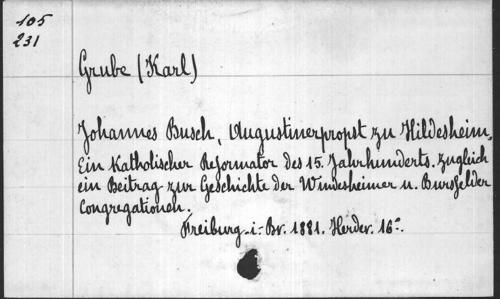 105
231
Grube (Karl)
Johannes Busch, Augustinerpropst zu Hildesheim.
Ein Katholischer Reformator des 15. Jahrhunderts. Zugleich
ein Beitrag zur Geschichte der Windesheimer u. Bursfelder
Congregationen.
Freiburg i. Br. 1881. Herder. 16°.